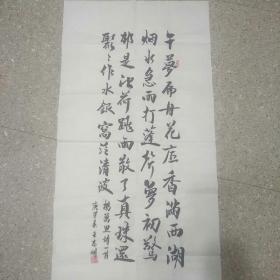 午夢扁舟花底香滿西湖
烟水急雨打蓬聲夢初驚
却是池荷跳雨散了真珠還
聚々作水銀窩泻清波 楊萬里詩一首